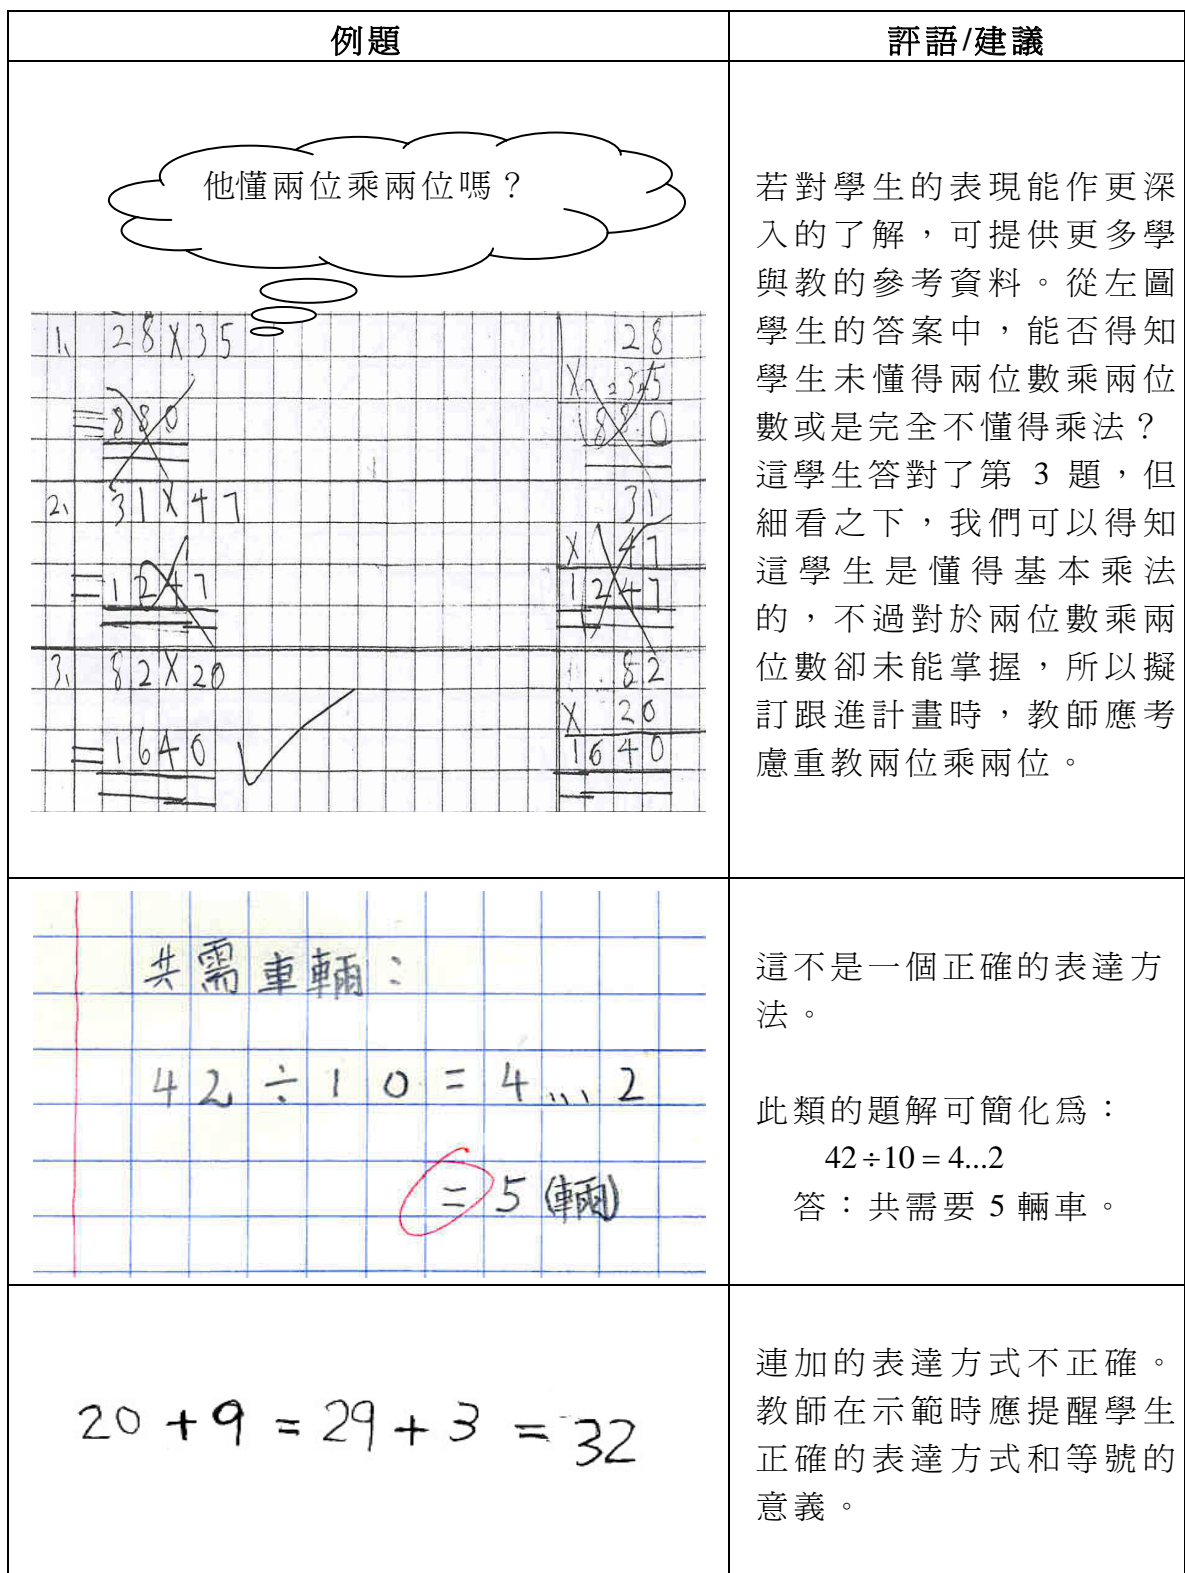 例題
評語/建議
他懂兩位乘兩位嗎？
1、 28X35
=880
28
X 35
880
2、 31X47
=1247
31
X 47
1247
3、 82X20
=1640
82
X 20
1640
若對學生的表現能作更深
入的了解，可提供更多學
與教的參考資料。從左圖
學生的答案中，能否得知
學生未懂得兩位數乘兩位
數或是完全不懂得乘法？
這學生答對了第 3 題，但
細看之下，我們可以得知
這學生是懂得基本乘法
的，不過對於兩位數乘兩
位數卻未能掌握，所以擬
訂跟進計畫時，教師應考
慮重教兩位乘兩位。
共需車輛：
42÷10=4...2
=5(輛)
這不是一個正確的表達方
法。
此類的題解可簡化爲：
42÷10=4...2
答：共需要 5 輛車。
20+9=29+3=32
連加的表達方式不正確。
教師在示範時應提醒學生
正確的表達方式和等號的
意義。